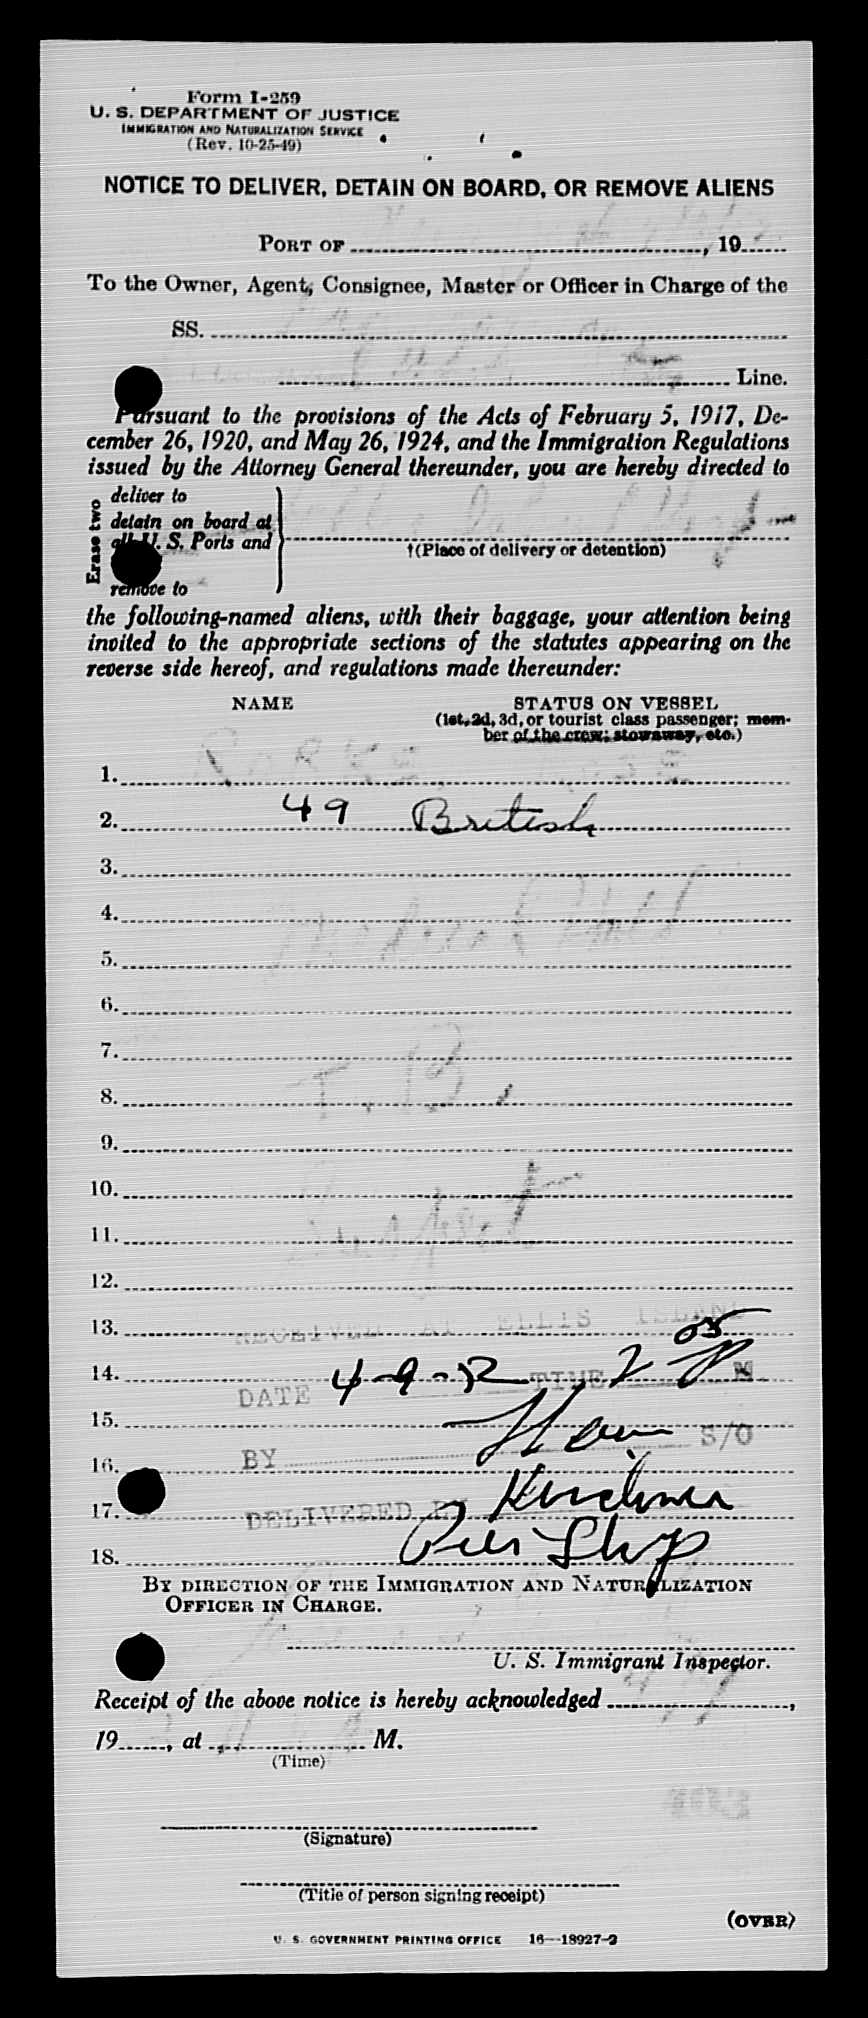 Form I-259
U. S. DEPARTMENT OF JUSTICE
IMMIGRATION AND NATURALIZATION SERVICE
(Rev. 10-25-49)
NOTICE TO DELIVER, DETAIN ON BOARD, OR REMOVE ALIENS
PORT OF , 19
To the Owner, Agent, Consignee, Master or Officer in Charge of the
SS.
Line.
Pursuant to the provisions of the Acts of February 5, 1917, De-
cember 26, 1920, and May 26, 1924, and the Immigration Regulations
issued by the Attorney General thereunder, you are hereby directed to
Erase two
deliver to
detain on board at
all U. S. Ports and
remove to
†(Place of delivery or detention)
the following-named aliens, with their baggage, your attention being
invited to the appropriate sections of the statutes appearing on the
reverse side hereof, and regulations made thereunder:
NAME STATUS ON VESSEL
(1st, 2d, 3d, or tourist class passenger; mem-
ber of the crew; stowaway, etc.)
1.
2. 49 British
3.
4.
5.
6.
7.
8. T. B.
9.
10.
11.
12.
13. RECEIVED AT ELLIS ISLAND
14. DATE 4-9-52 TIME 2 05 M
15.
16. BY S/O
17. DELIVERED BY
18.
BY DIRECTION OF THE IMMIGRATION AND NATURALIZATION
OFFICER IN CHARGE.
U. S. Immigrant Inspector.
Receipt of the above notice is hereby acknowledged ,
19 , at M.
(Time)
(Signature)
(Title of person signing receipt)
(OVER)
U. S. GOVERNMENT PRINTING OFFICE 16—18927-2